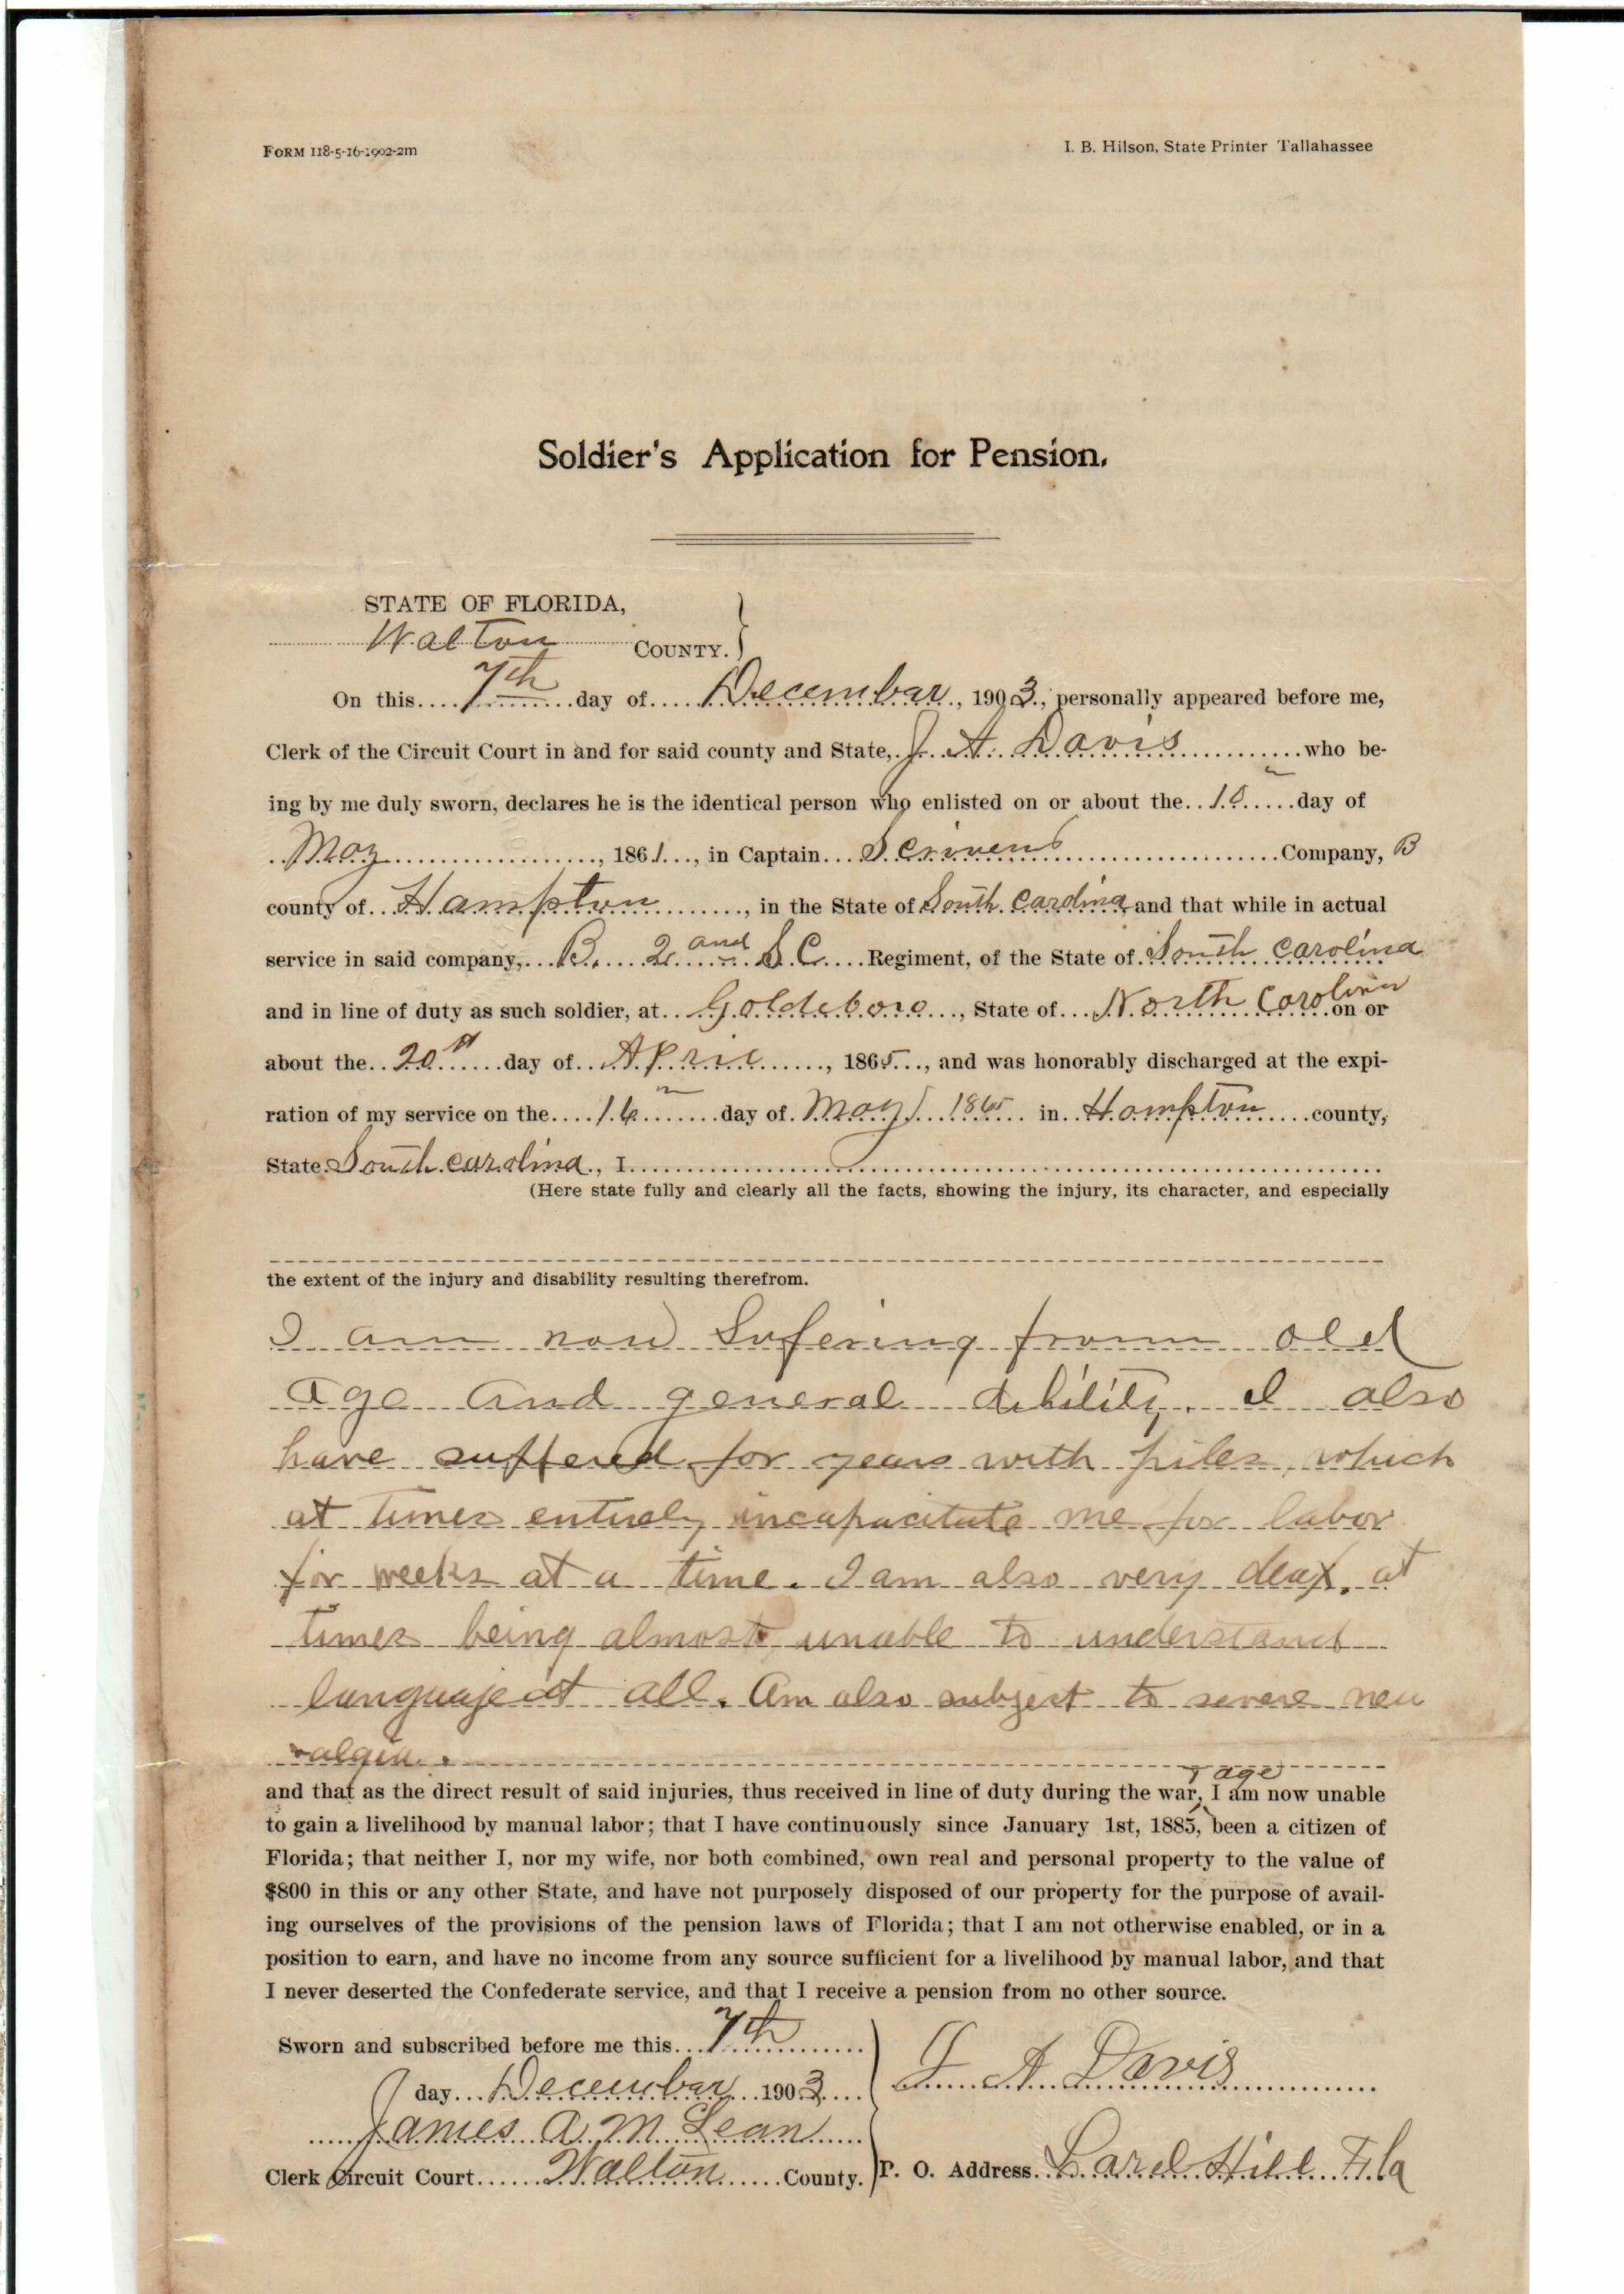 FORM 118-5-16-1902-2m
I. B. Hilson, State Printer Tallahassee
Soldier's Application for Pension.
STATE OF FLORIDA,
Walton COUNTY.
On this 7th day of December, 1903, personally appeared before me,
Clerk of the Circuit Court in and for said county and State, J. A. Davis who be-
ing by me duly sworn, declares he is the identical person who enlisted on or about the 10 day of
May, 1861, in Captain Scrivens Company, B
county of Hampton, in the State of South Carolina and that while in actual
service in said company, B. 2 and S C Regiment, of the State of South Carolina
and in line of duty as such soldier, at Goldsboro, State of North Carolina on or
about the 20st day of April, 1865, and was honorably discharged at the expi-
ration of my service on the 16 day of May 1865 in Hampton county,
State South Carolina, I
(Here state fully and clearly all the facts, showing the injury, its character, and especially
the extent of the injury and disability resulting therefrom.
I am now Sufering from old
age and general debility. I also
have suffered for years with piles, which
at times entirely incapacitate me for labor
for weeks at a time. I am also very deaf, at
times being almost unable to understand
language at all. Am also subject to severe neu
ralgia.
& age
and that as the direct result of said injuries, thus received in line of duty during the war, I am now unable
to gain a livelihood by manual labor; that I have continuously since January 1st, 1885, been a citizen of
Florida; that neither I, nor my wife, nor both combined, own real and personal property to the value of
$800 in this or any other State, and have not purposely disposed of our property for the purpose of avail-
ing ourselves of the provisions of the pension laws of Florida; that I am not otherwise enabled, or in a
position to earn, and have no income from any source sufficient for a livelihood by manual labor, and that
I never deserted the Confederate service, and that I receive a pension from no other source.
Sworn and subscribed before me this 7th
day December 1903
J. A. Davis
James A. McLean
Clerk Circuit Court Walton County.
P. O. Address. Larel Hill Fla